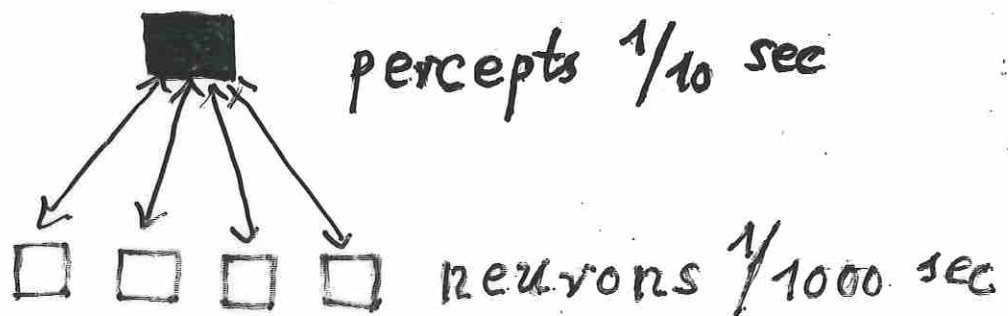 percepts 1/10 sec
neurons 1/1000 sec